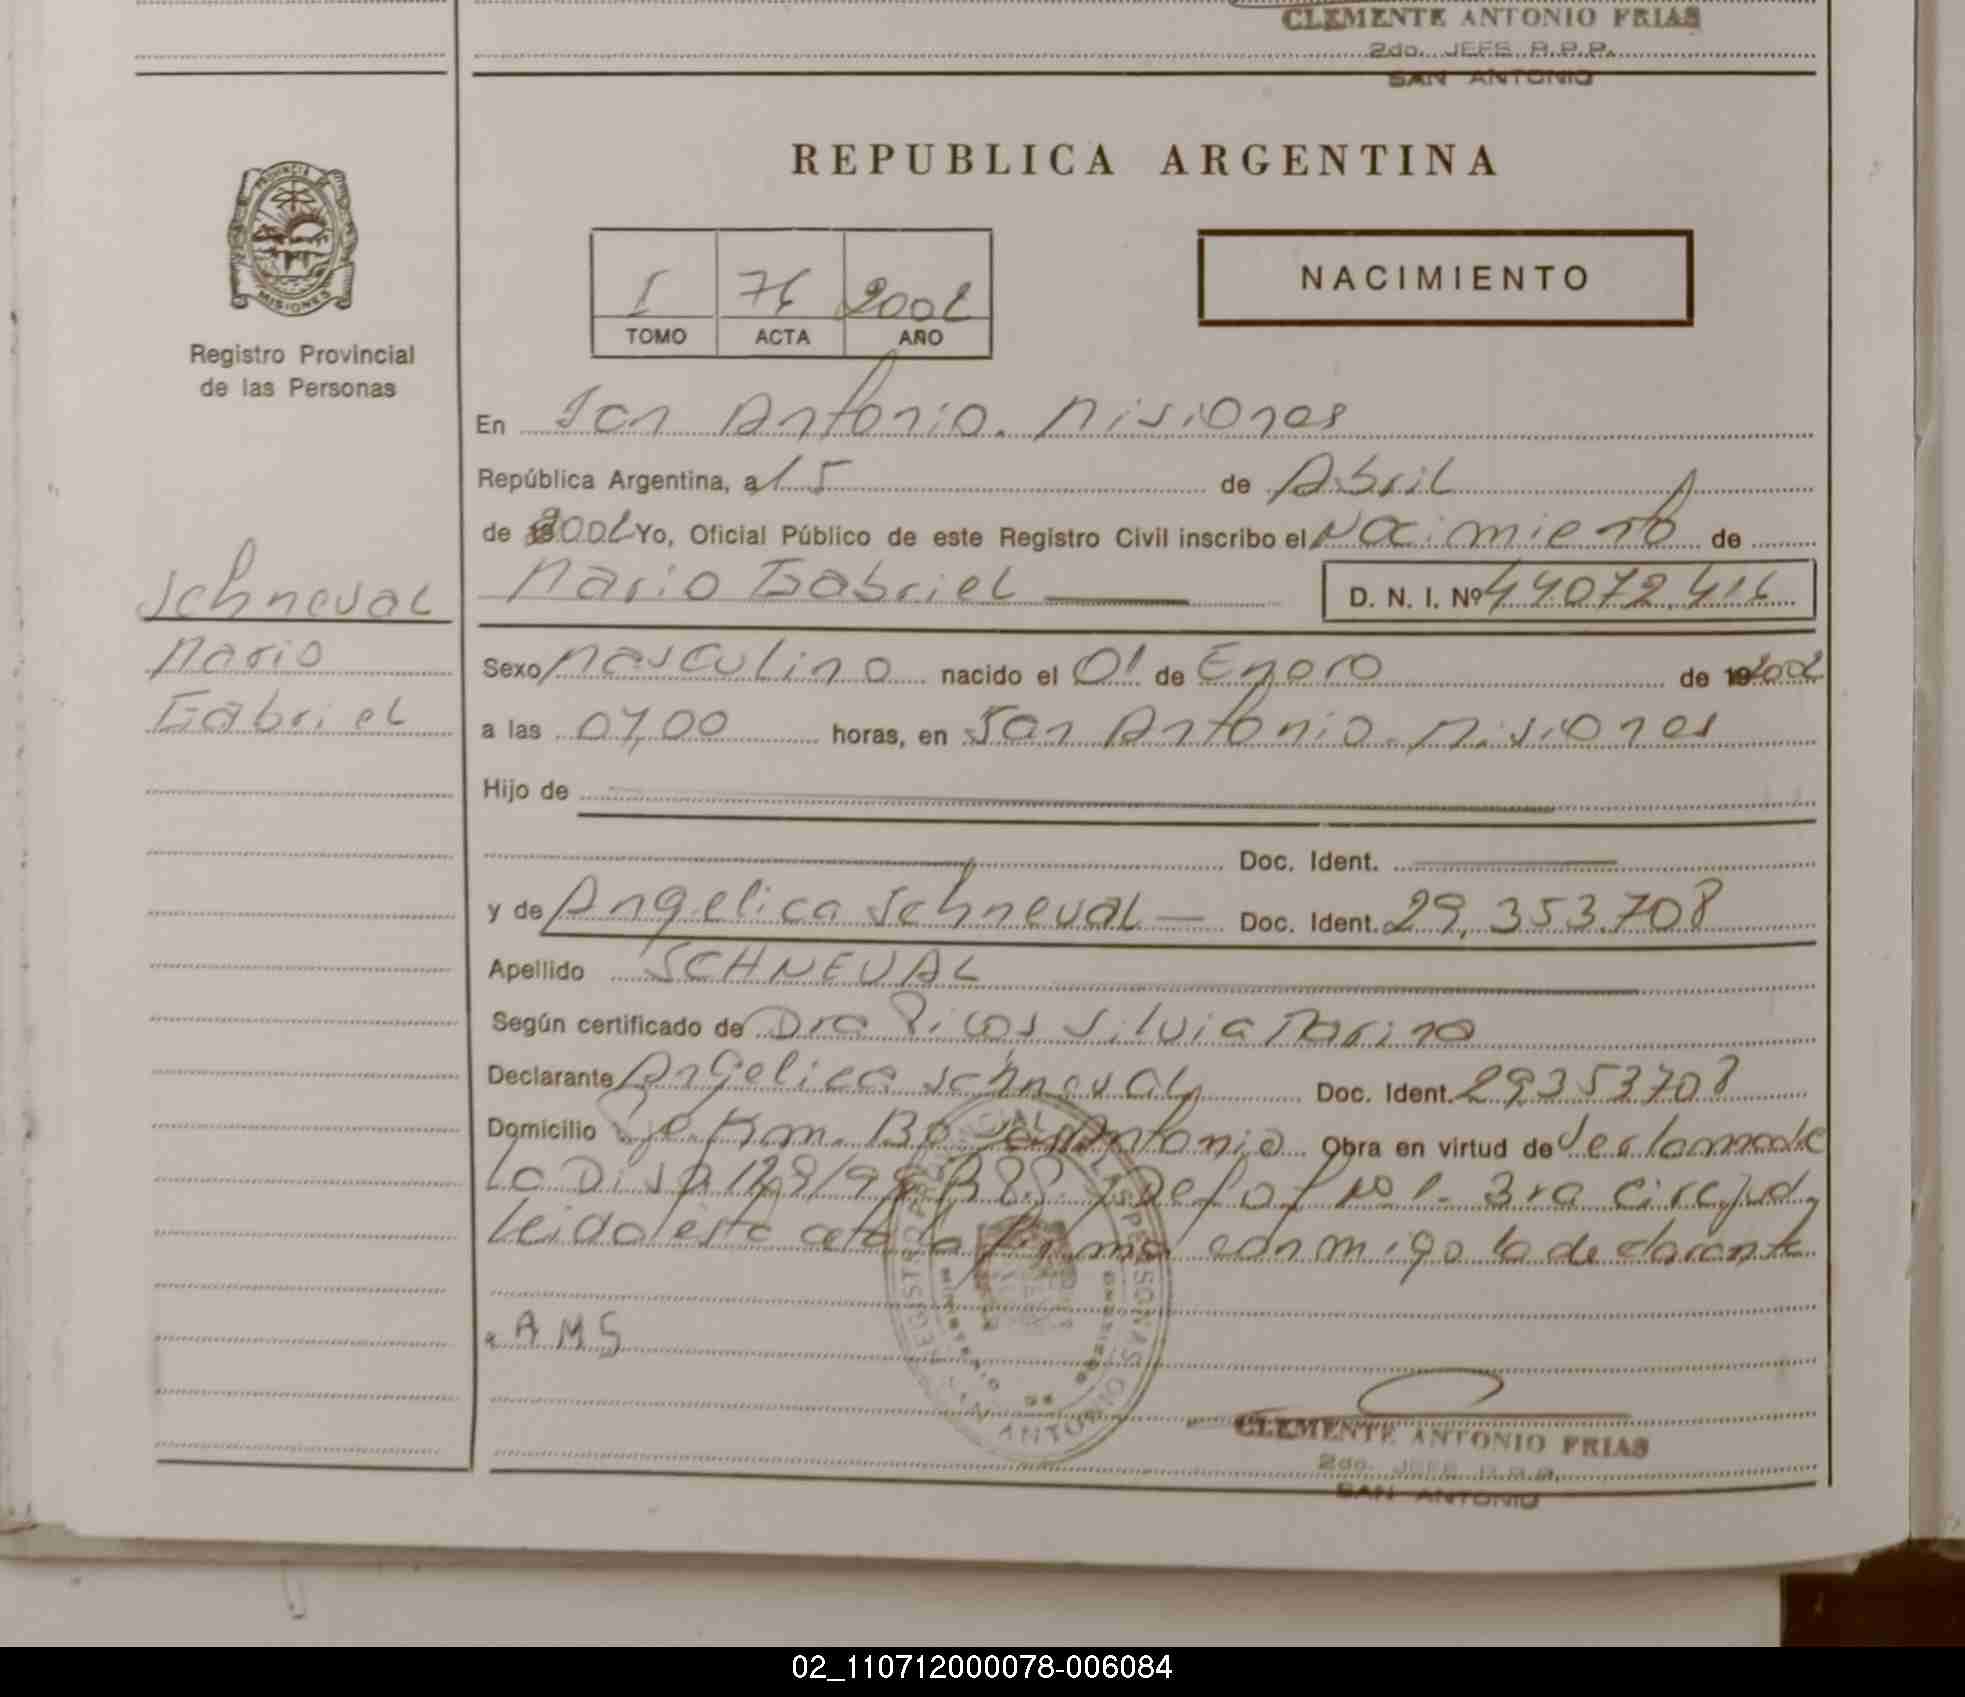 CLEMENTE ANTONIO FRIAS
2do. JEFE R.P.P.
SAN ANTONIO
REPUBLICA ARGENTINA
PROVINCIA DE
MISIONES
Registro Provincial
de las Personas
I 76 2002
TOMO ACTA AÑO
NACIMIENTO
En San Antonio. Misiones
República Argentina, a 15 de Abril
de 2002 Yo, Oficial Público de este Registro Civil inscribo el Nacimiento de
Mario Gabriel D. N. I. Nº 44072.416
Schneval
Mario
Gabriel
Sexo Masculino nacido el 01 de Enero de 2002
a las 07,00 horas, en San Antonio. Misiones
Hijo de
Doc. Ident.
y de Angelica Schneval Doc. Ident. 29.353.708
Apellido SCHNEVAL
Según certificado de Dra Picos Silvia Marina
Declarante Angelica Schneval Doc. Ident. 29353708
Domicilio Km. Bo San Antonio Obra en virtud de
La Disp. 128/99 R.P.P. y Def Of No 1. 3ra Circ Jud,
Leida esta acta la firma conmigo la declarante
AMS
REGISTRO PROVINCIAL DE LAS PERSONAS
MINISTERIO DE GOBIERNO
SAN ANTONIO
CLEMENTE ANTONIO FRIAS
2do. JEFE R.P.P.
SAN ANTONIO
02_110712000078-006084